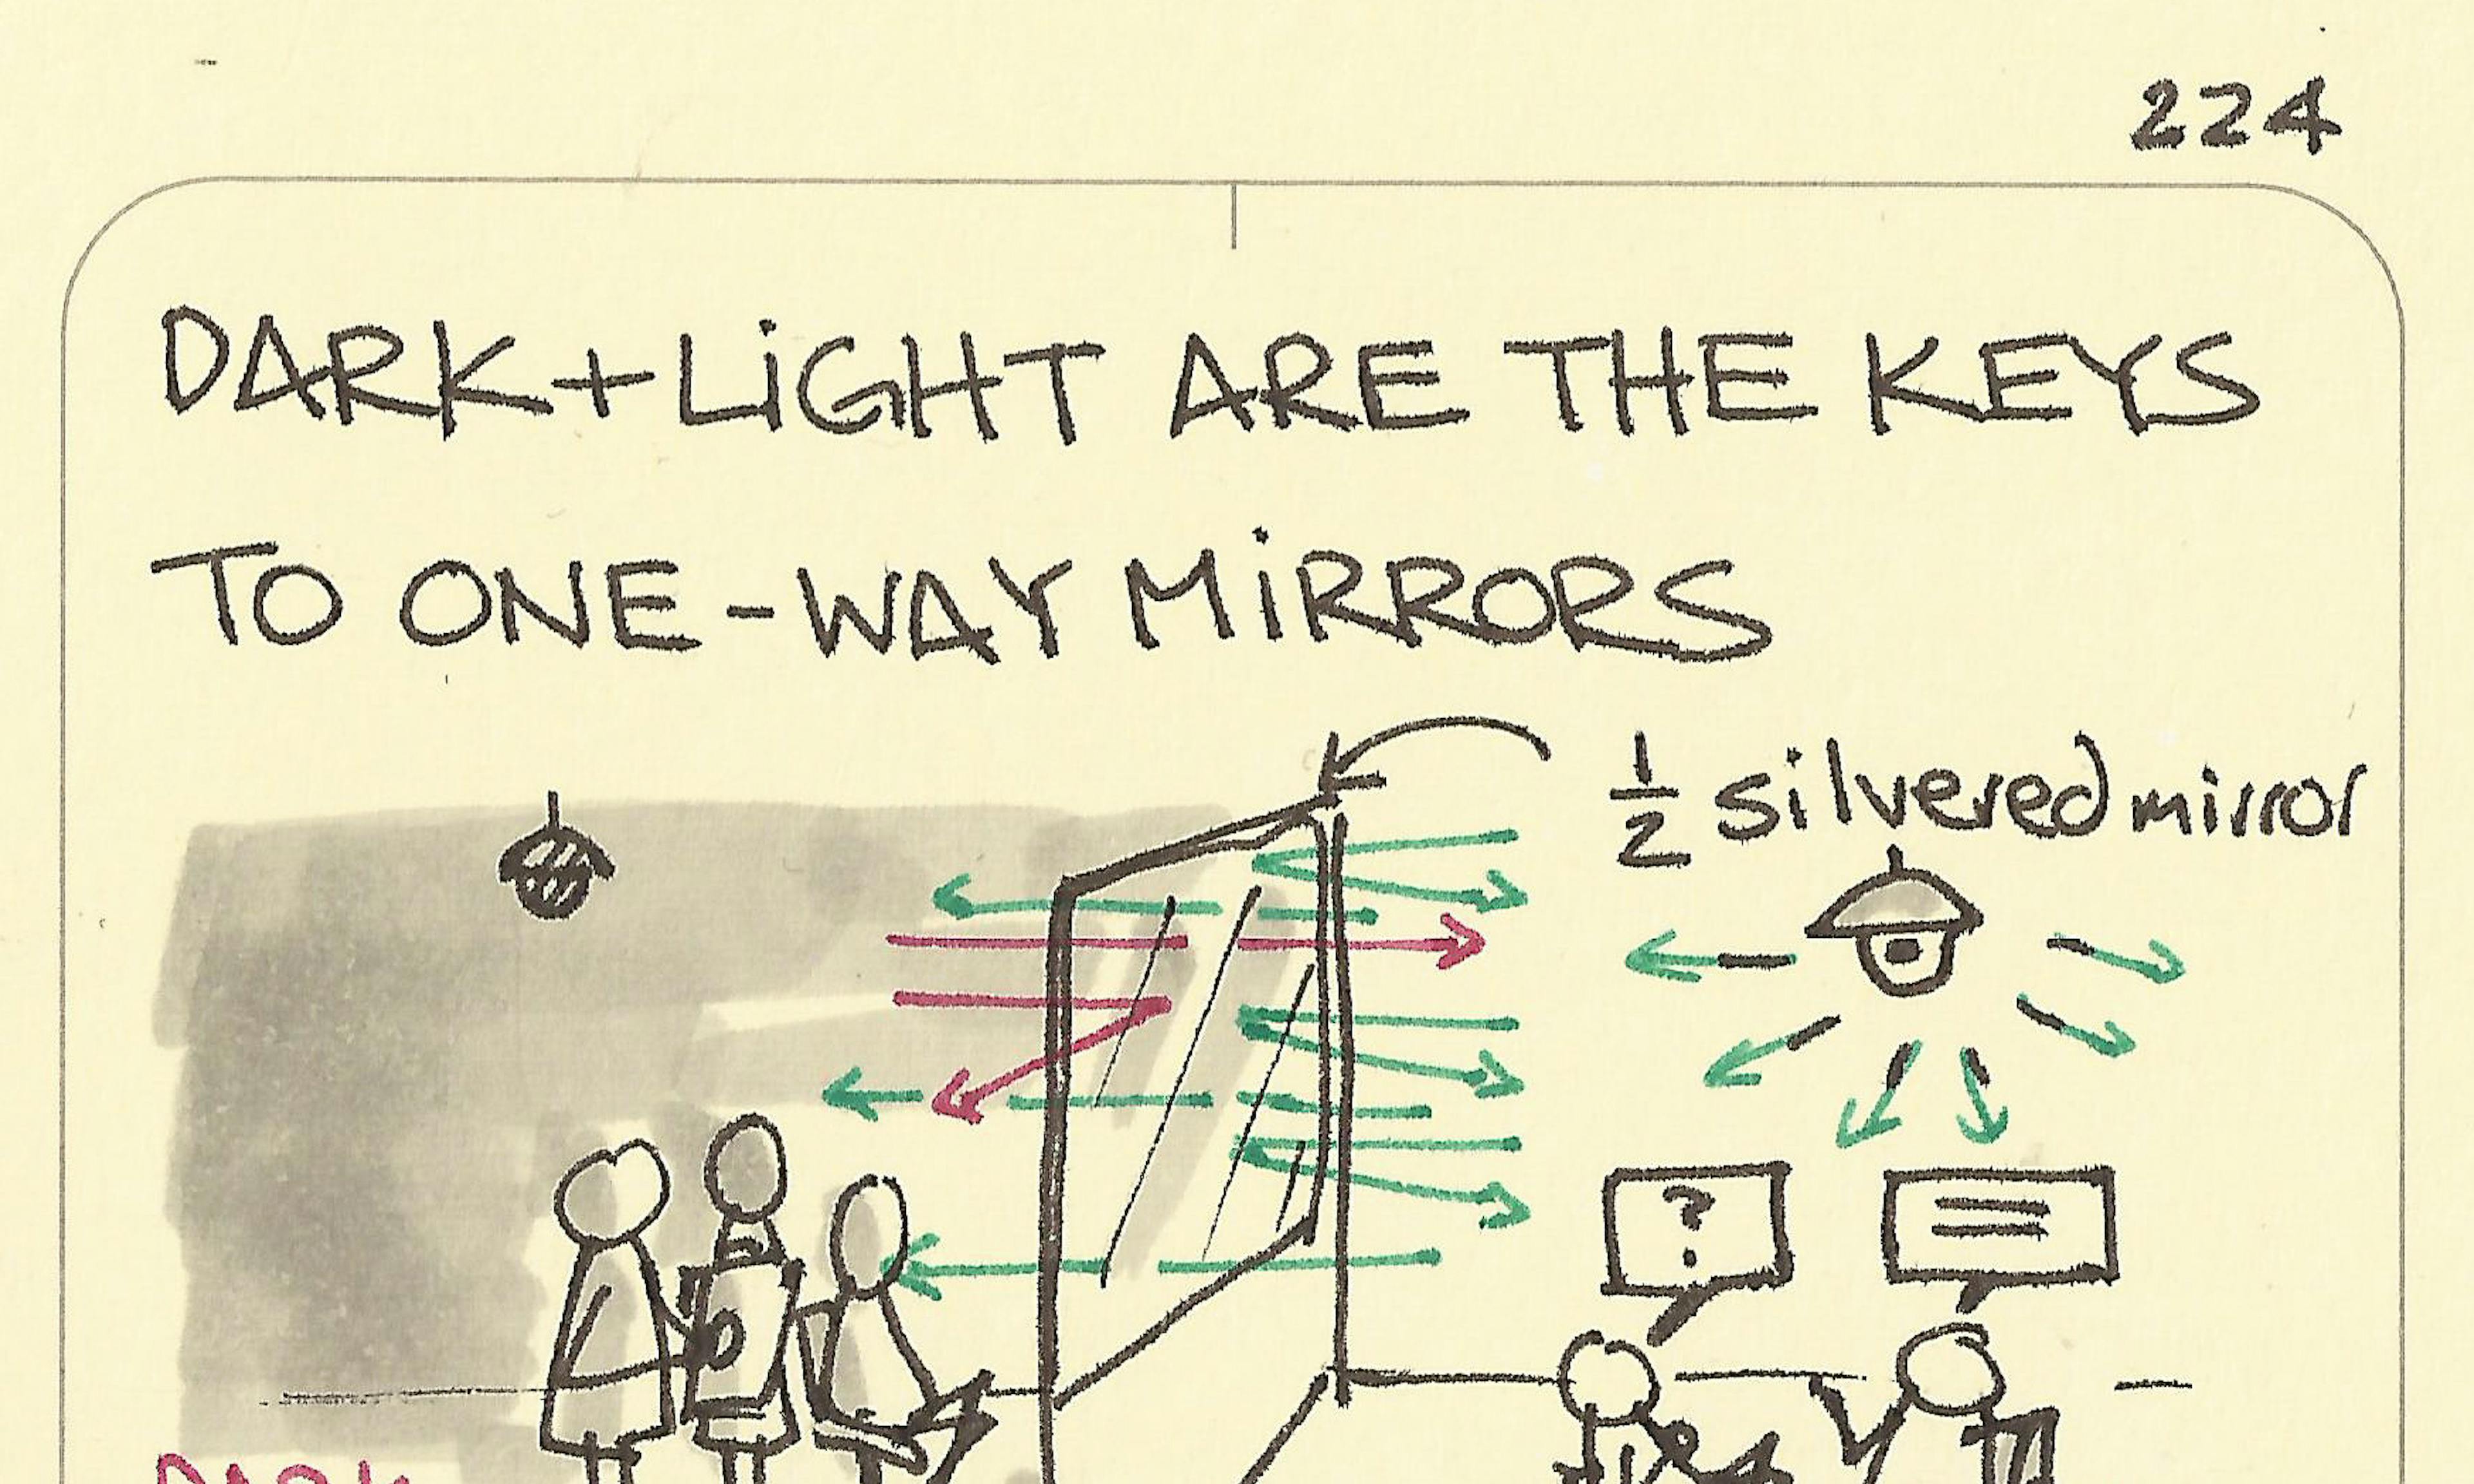 224
DARK + LiGHT ARE THE KEYS
TO ONE-WAY MiRRORS
1/2 silvered mirror
?
DARK